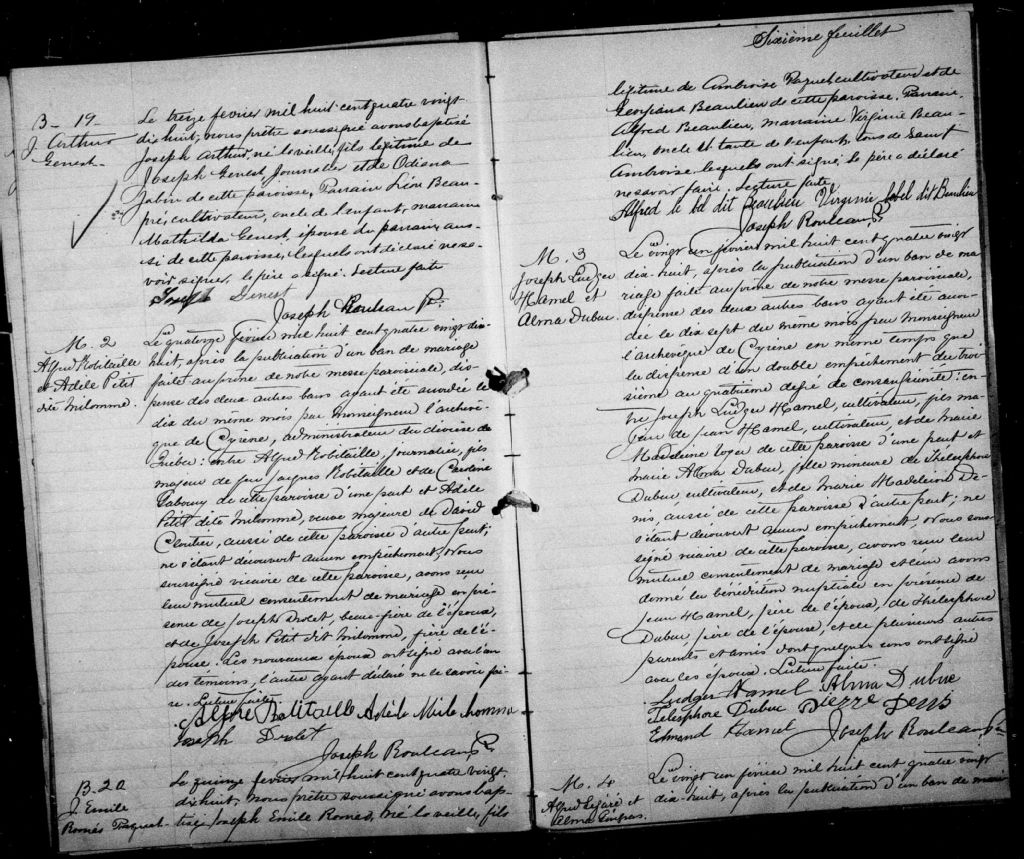 B- 19.
J. Arthur
Genest.
Le treize fevrier mil huit cent quatre vingt-
dix huit, nous prêtre soussigné avons baptisé
Joseph Arthur, né la veille, fils légitime de
Joseph Genest, Journalier et de Odiana
Jobin de cette paroisse, Parrain Léon Beau-
pré cultivateur, oncle de l'enfant, marraine
Mathilda Genest, épouse du parrain, aus-
si de cette paroisse, lesquels ont déclaré ne sa-
voir signer, le père a signé. Lecture faite
Joseph Genest
Joseph Rouleau Ptr.
M. 2
Alfred Robitaille
et Adèle Petit
dite Milomme.
Le quatorze Février mil huit cent quatre vingt dix-
huit, après la publication d'un ban de mariage
faite au prône de notre messe paroissiale, dis-
pense des deux autres bans ayant été accordée le
dix du même mois par Monseigneur l'archevê-
que de Cyrène, administrateur du diocèse de
Québec: entre Alfred Robitaille, journalier, fils
majeur de feu Jacques Robitaille et de Caroline
Gaboury de cette paroisse d'une part et Adèle
Petit dite Milomme, veuve majeure de David
Cloutier, aussi de cette paroisse d'autre part;
ne s'étant découvert aucun empêchement, Nous
soussigné vicaire de cette paroisse, avons reçu
leur mutuel consentement de mariage en pré-
sence de Joseph Drolet, beau-frère de l'époux,
et de Joseph Petit dit Milomme, frère de l'é-
pouse. Les nouveaux époux ont signé avec l'un
des témoins, l'autre ayant déclaré ne le savoir fai-
re. Lecture faite
Alfred Robitaille Adèle Milo homme
Joseph Drolet
Joseph Rouleau Ptr.
B. 20
J. Emile
Roméo Paquet
Le quinze fevrier mil huit cent quatre vingt-
dix huit, nous prêtre soussigné avons bap-
tisé Joseph Emile Roméo, né la veille, fils
Sixième feuillet
légitime de Ambroise Paquet cultivateur et de
Georgiana Beaulieu de cette paroisse. Parrain
Alfred Beaulieu, marraine Virginie Beau-
lieu, oncle et tante de l'enfant, tous de Saint
Ambroise, lesquels ont signé, le père a déclaré
ne savoir faire. Lecture faite
Alfred le bel dit Beaulieu Virginie lebel dit Beaulieu
Joseph Rouleau Ptr.
M. 3
Joseph Ludger
Hamel et
Alma Dubuc.
Le vingt un février mil huit cent quatre vingt
dix-huit, après la publication d'un ban de ma-
riage faite au prône de notre messe paroissiale,
dispense des deux autres bans ayant été accor-
dée le dix sept du même mois par Monseigneur
l'archevêque de Cyrène en même temps que
la dispense d'un double empêchement du troi-
sième au quatrième degré de consanguinité: en-
tre Joseph Ludger Hamel, cultivateur, fils ma-
jeur de Jean Hamel, cultivateur, et de Marie
Madeleine Voyer de cette paroisse d'une part et
Marie Alma Dubuc, fille mineure de Thélesphore
Dubuc cultivateur, et de Marie Madeleine De-
nis, aussi de cette paroisse d'autre part; ne
s'étant découvert aucun empêchement, Nous sous-
signé vicaire de cette paroisse, avons reçu leur
mutuel consentement de mariage et leur avons
donné la bénédiction nuptiale en présence de
Jean Hamel, père de l'époux, de Thélesphore
Dubuc père de l'épouse, et de plusieurs autres
parents et amis dont quelques-uns ont signé
avec les époux. Lecture faite.
Ludger Hamel Alma Dubuc
Telesphore Dubuc Pierre Denis
Edmond Hamel
Joseph Rouleau Ptr.
M. 4
Alfred Légaré et
Alma Gingras.
Le vingt un février mil huit cent quatre vingt
dix-huit, après la publication d'un ban de maria-